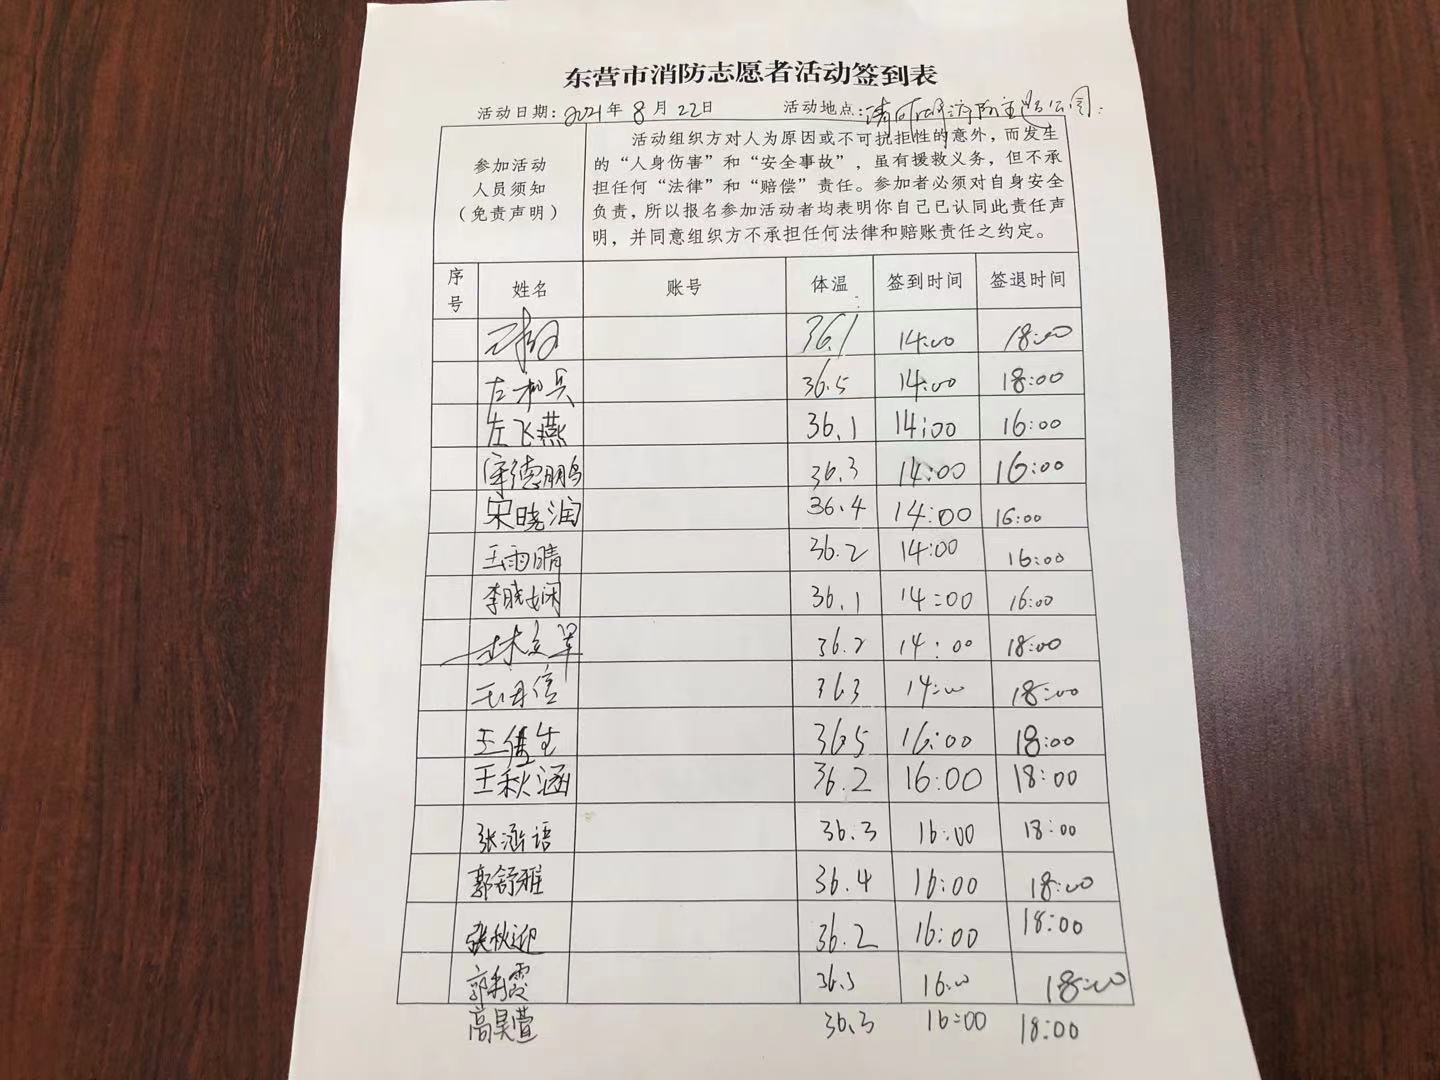 东营市消防志愿者活动签到表
活动日期：2021年8月22日 活动地点：清风湖消防主题公园
参加活动
人员须知
（免责声明）
活动组织方对人为原因或不可抗拒性的意外，而发生
的“人身伤害”和“安全事故”，虽有援救义务，但不承
担任何“法律”和“赔偿”责任。参加者必须对自身安全
负责，所以报名参加活动者均表明你自己已认同此责任声
明，并同意组织方不承担任何法律和赔账责任之约定。
序号 姓名 账号 体温 签到时间 签退时间
36.1 14:00 18:00
36.5 14:00 18:00
左飞燕 36.1 14:00 16:00
德鹏 36.3 14:00 16:00
宋晓润 36.4 14:00 16:00
王雨晴 36.2 14:00 16:00
李晓娴 36.1 14:00 16:00
36.2 14:00 18:00
36.3 14:00 18:00
王 生 36.5 16:00 18:00
王秋涵 36.2 16:00 18:00
张涵语 36.3 16:00 18:00
郭舒雅 36.4 16:00 18:00
张秋迎 36.2 16:00 18:00
郭秀霞 36.3 16:00 18:00
高昊萱 36.3 16:00 18:00